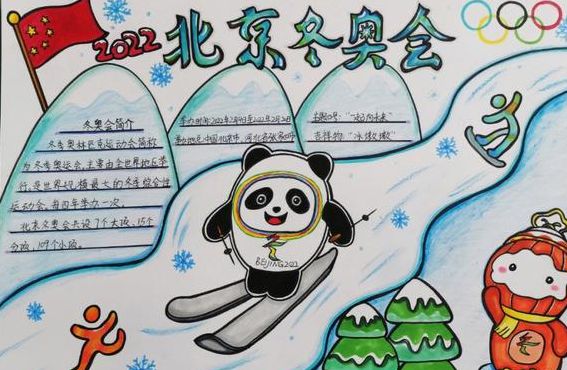 2022 北京冬奥会
冬奥会简介
冬季奥林匹克运动会简称
为冬季奥运会,主要由全世界地区举
行,是世界规模最大的冬季综合性
运动会,每四年举办一次。
北京冬奥会共设7个大项,15个
分项,109个小项。
举办时间:2022年2月4日至2022年2月20日
举办地点:中国北京市、河北省张家口市
主题口号:"一起向未来"
吉祥物:"冰墩墩"
BEIJING2022